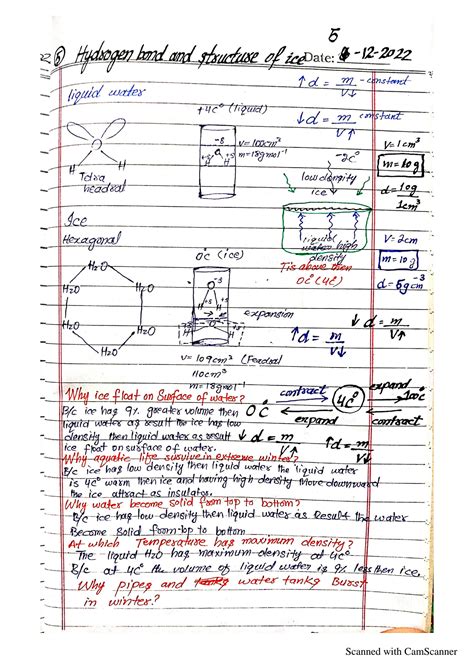 5
(6) Hydrogen bond and structure of ice Date: 6-12-2022
liquid water
↑d = m/V↓ - constant
+4c° (liquid)
↓d = m/V↑ constant
-δ
H H
v=100cm³
m=18gmol⁻¹
H H
Tetra
headral
-2c°
low density
ice
liquid
water high
density
T is above then
0c° (4c°)
V=1cm³
m=10g
d=10g/1cm³
V=2cm
m=10g
d=5gcm⁻³
Ice
Hexagonal
H₂O
H₂O H₂O
H₂O H₂O
H₂O
0c° (ice)
O
H H
expansion
v=109cm³ (Feadral
110cm³
m=18gmol⁻¹
↑d = m/V↓
↓d = m/V↑
Why ice float on Surface of water?
B/c ice has 9% greater volume then
liquid water as result the ice has low
density then liquid water as result
ice float on surface of water.
0c° contract 4c° expand 100c°
expand contract
↓d = m/V↑
↑d = m/V↓
Why aquatic life survive in extreme winter?
B/c ice has low density then liquid water the liquid water
is 4c° warm then ice and having high density Move downward
the ice attract as insulator.
Why water become solid from top to bottom?
B/c ice has low density then liquid water as Result the water
Become Solid form top to bottom
At which Temperature has maximum density?
The liquid H₂O has maximum density at 4c°
B/c at 4c° the volume of liquid is 9% less then ice.
Why pipes and tanks water tanks Burst
in winter?
Scanned with CamScanner